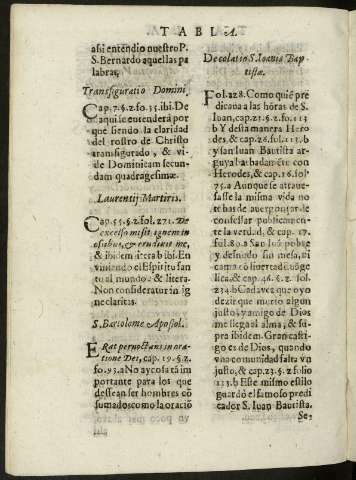 TABLA.
assi entendio nuestro P.
S. Bernardo aquellas pa
labras,
Transfiguratio Domini,
Cap. 7. §. 2. fo. 35. ibi. De
aqui se entenderá por
que siendo la claridad
del rostro de Christo
transfigurado, & vi-
de Dominicam secun-
dam quadragesimæ.
Laurentij Martiris.
Cap. 55. §. 2. fol. 271. De
excelso misit ignem in
ossibus, & erudiuit me,
& ibidem litera b ibi. En
viniendo el Espiritu san
to al mundo: & litera
Non consideratur in ig
ne claritas.
S. Bartolome Apostol.
Erat pernoctans in ora
tione Dei, cap. 19. §. 2.
fo. 93. a No ay cosa tā
importante para los que
dessean ser hombres cō
sumados como la oraciō
Decolatio S. Ioanis Bap-
tistæ.
Fol. 128. Como quiē pre
dicana a las hōras de S.
Iuan, cap. 23. §. 2. fo. 113
b Y desta manera Hero
des, & cap. 26. fol. 113.
b y san Iuan Bautista ar
guya abadamēte con
Herodes, & cap. 16. fol.
75. a Aunque se atraue-
sasse la misma vida no
te has de auergonçar de
confessar publicamen-
te la verdad, & cap. 17.
fol. 80. a San Iuā pobre
y desnudo sin mesa, ni
cama cō libertad coge
lica, & cap. 46. §. 2. fol.
234. b Cada vez que oyo
dezir que murio algun
justo, y amigo de Dios
me llega al alma, & su-
pra ibidem. Gran casti-
go es de Dios, quando
vna comunidad falta vn
justo, & cap. 23. §. 2. folio
113. b Este mismo estilo
guardó el famoso predi
cador S. Iuan Bautista.
Se,